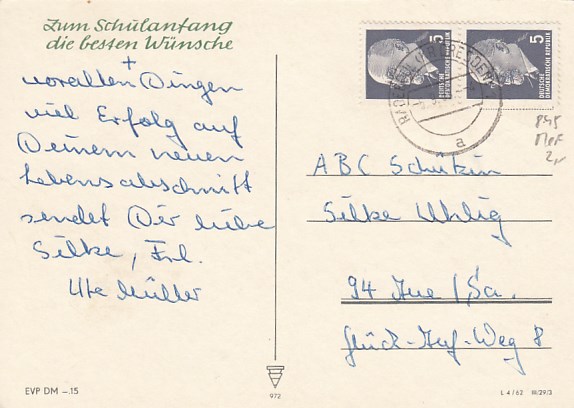 Zum Schulanfang
die besten Wünsche
+
vorallen Dingen
viel Erfolg auf
Deinem neuen
Lebensabschnitt
sendet Dir liebe
Silke, Frl.
Ute Müller
EVP DM –.15
972
5
DEUTSCHE
DEMOKRATISCHE REPUBLIK
5
DEUTSCHE
DEMOKRATISCHE REPUBLIK
a
845
MeF
2,-
ABC Schützin
Silke Uhlig
94 Aue / Sa.
Glück-Auf-Weg 8
L 4/62 III/29/3